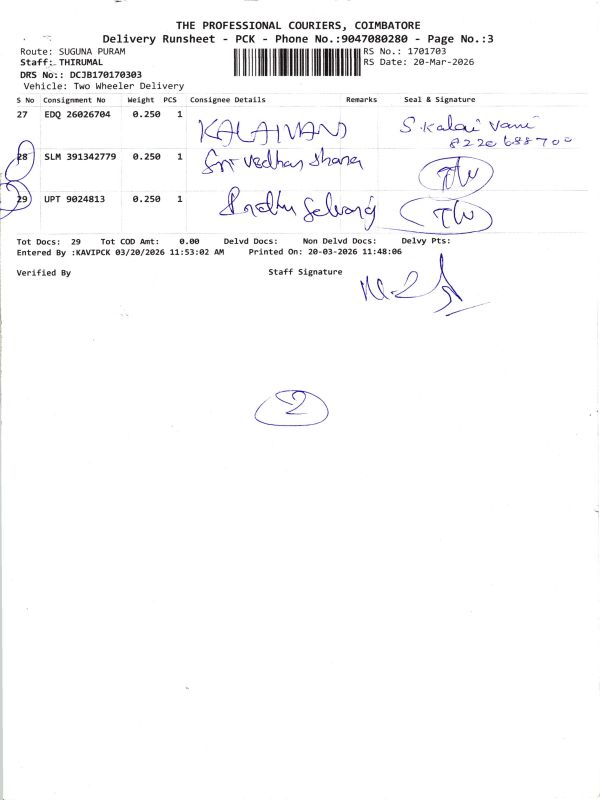 THE PROFESSIONAL COURIERS, COIMBATORE
Delivery Runsheet - PCK - Phone No.:9047080280 - Page No.:3
Route: SUGUNA PURAM RS No.: 1701703
Staff: THIRUMAL RS Date: 20-Mar-2026
DRS No:: DCJB170170303
Vehicle: Two Wheeler Delivery
S No Consignment No Weight PCS Consignee Details Remarks Seal & Signature
27 EDQ 26026704 0.250 1 KALAIVANI S. Kalai Vani
8220688700
28 SLM 391342779 0.250 1 Sri
29 UPT 9024813 0.250 1
Tot Docs: 29 Tot COD Amt: 0.00 Delvd Docs: Non Delvd Docs: Delvy Pts:
Entered By :KAVIPCK 03/20/2026 11:53:02 AM Printed On: 20-03-2026 11:48:06
Verified By Staff Signature
2